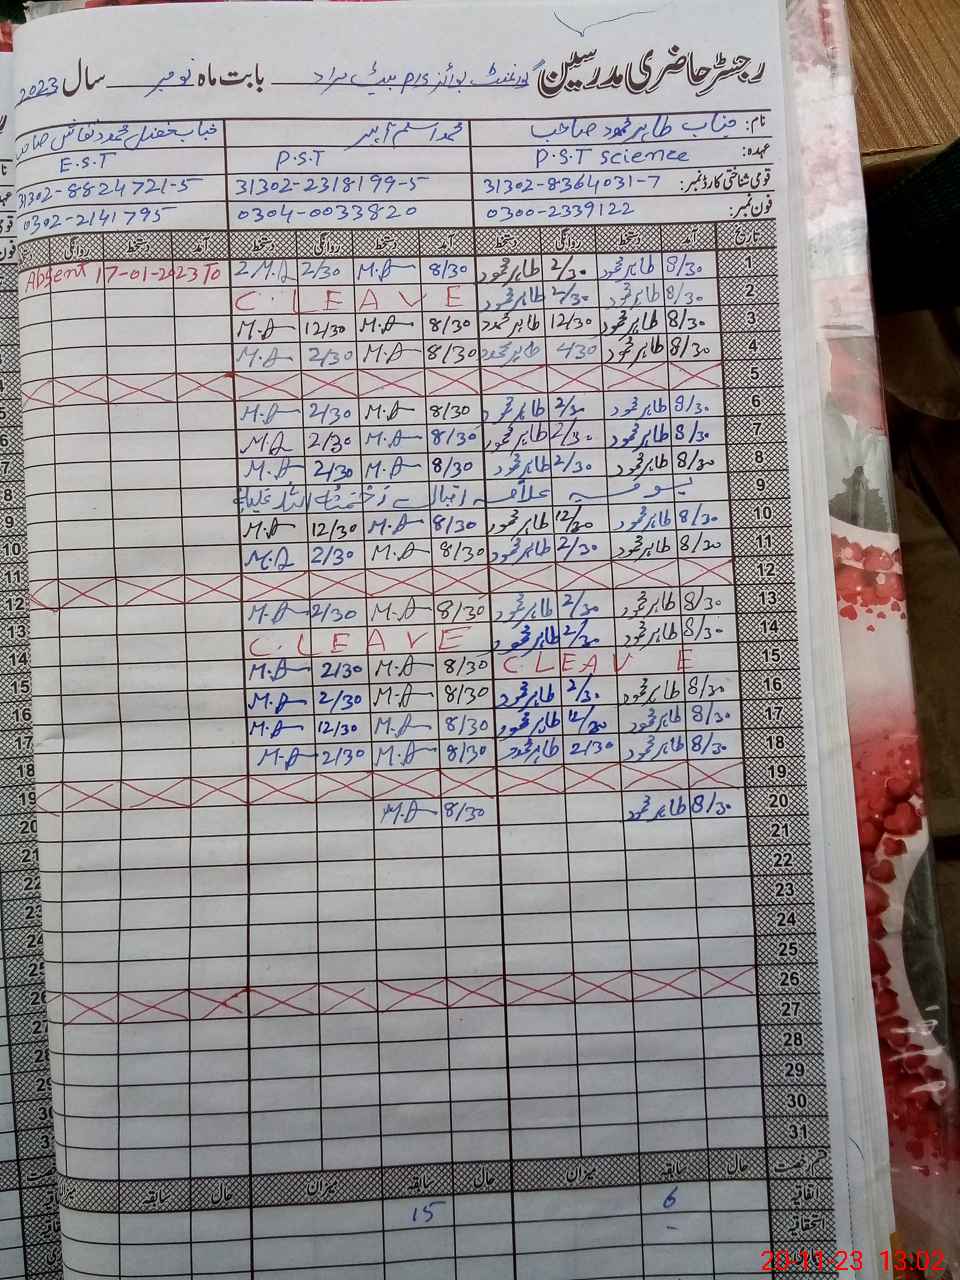 رجسٹر حاضری مدرسین گورنمنٹ بوائز P/S بابت ماہ نومبر سال 2023
نام: جناب طاہر محمود صاحب محمد اسلم
عہدہ: P.S.T science P.S.T E.S.T
قومی شناختی کارڈ نمبر: 31302-8364031-7 31302-2318199-5 31302-8824721-5
فون نمبر: 0300-2339122 0304-0033820 0302-2141795
تاریخ آمد دستخط روانگی دستخط آمد دستخط روانگی دستخط آمد دستخط روانگی
1 8/30 طاہر محمود 2/30 طاہر محمود 8/30 M.A 2/30 Absent 17-01-2023 To
2 8/30 طاہر محمود 2/30 طاہر محمود C.LEAVE
3 8/30 طاہر محمود 12/30 طاہر محمود 8/30 M.A 12/30 M.A
4 8/30 طاہر محمود 430 طاہر محمود 8/30 M.A 2/30 M.A
5
6 8/30 طاہر محمود 2/30 طاہر محمود 8/30 M.A 2/30 M.A
7 8/30 طاہر محمود 2/30 طاہر محمود 8/30 M.A 2/30 M.A
8 8/30 طاہر محمود 2/30 طاہر محمود 8/30 M.A 2/30 M.A
9 یومِ علامہ اقبال رحمتہ اللہ علیہ
10 8/30 طاہر محمود 12/30 طاہر محمود 8/30 M.A 12/30 M.A
11 8/30 طاہر محمود 2/30 طاہر محمود 8/30 M.A 2/30 M.A
12
13 8/30 طاہر محمود 2/30 طاہر محمود 8/30 M.A 2/30 M.A
14 8/30 طاہر محمود 2/30 طاہر محمود C.LEAVE
15 C.LEAVE 8/30 M.A 2/30 M.A
16 8/30 طاہر محمود 2/30 طاہر محمود 8/30 M.A 2/30 M.A
17 8/30 طاہر محمود 12/30 طاہر محمود 8/30 M.A 12/30 M.A
18 8/30 طاہر محمود 2/30 طاہر محمود 8/30 M.A 2/30 M.A
19
20 8/30 طاہر محمود 8/30 M.A
21
22
23
24
25
26
27
28
29
30
31
قسم رخصت حال سابقہ میزان حال سابقہ میزان حال سابقہ میزان
اتفاقیہ 6 15
استحقاقیہ -
20-11-23 13:02